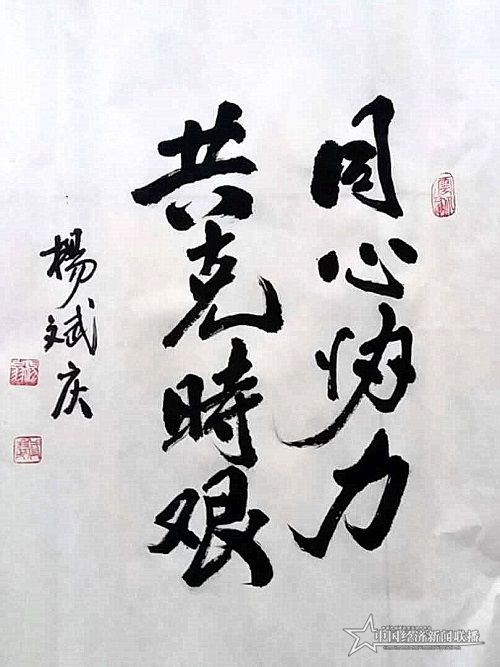 同心协力
共克時艰
楊斌庆
中国经济新闻联播